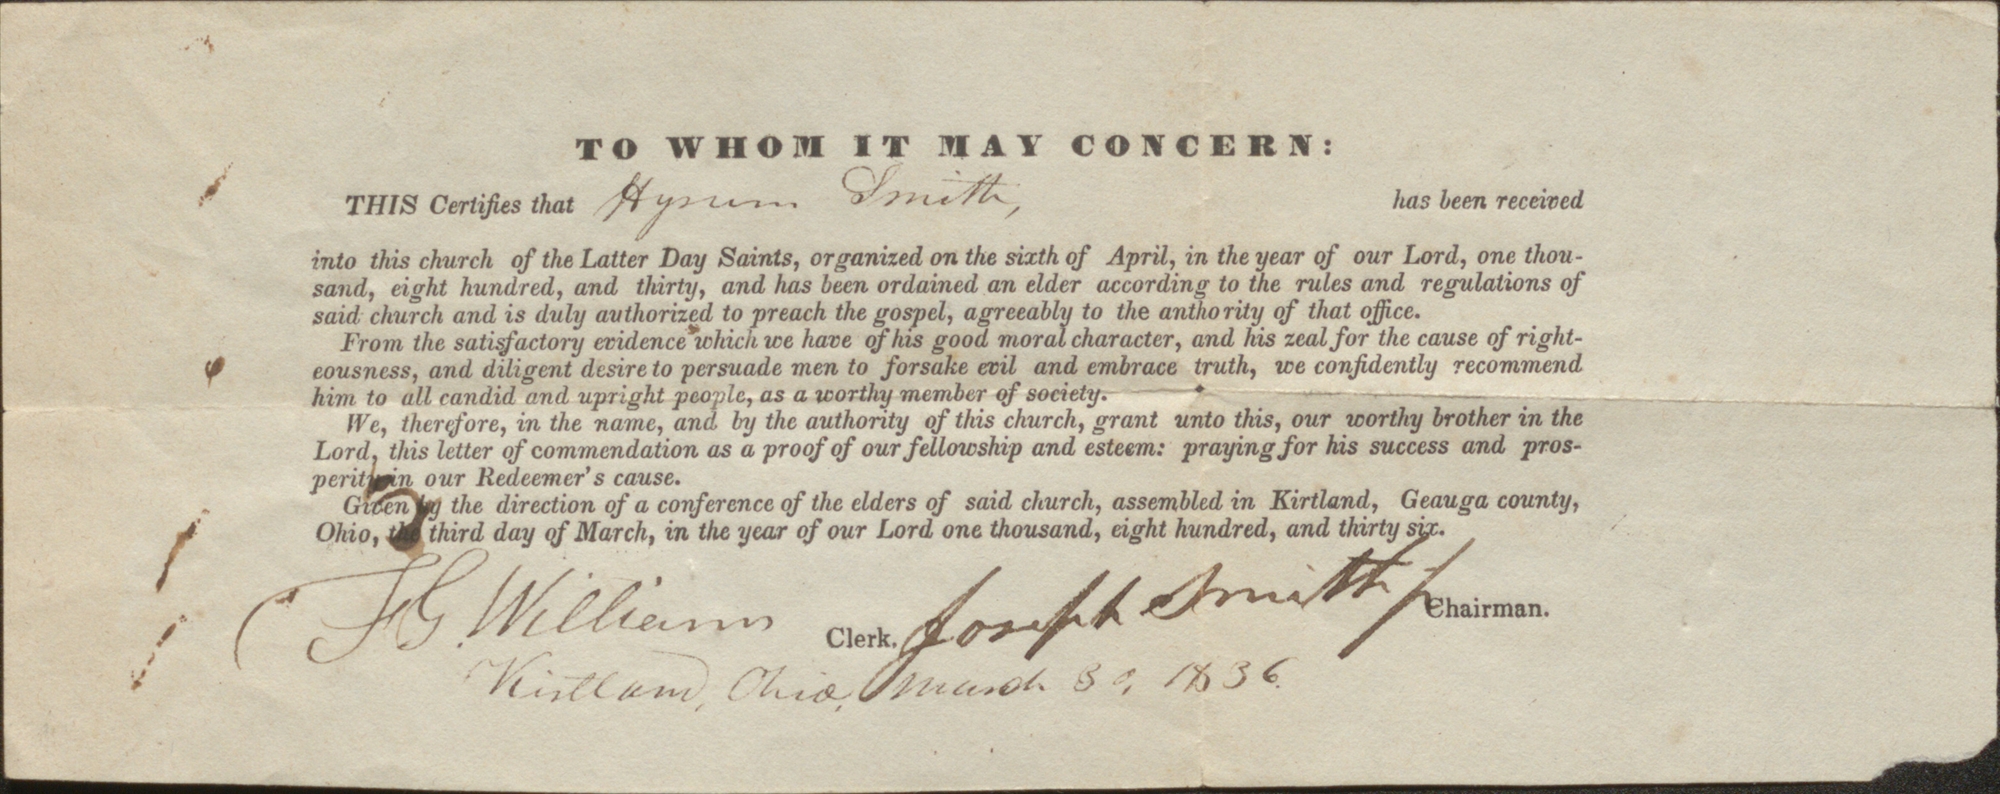 TO WHOM IT MAY CONCERN:
THIS Certifies that Hyrum Smith, has been received
into this church of the Latter Day Saints, organized on the sixth of April, in the year of our Lord, one thou-
sand, eight hundred, and thirty, and has been ordained an elder according to the rules and regulations of
said church and is duly authorized to preach the gospel, agreeably to the anthority of that office.
From the satisfactory evidence which we have of his good moral character, and his zeal for the cause of right-
eousness, and diligent desire to persuade men to forsake evil and embrace truth, we confidently recommend
him to all candid and upright people, as a worthy member of society.
We, therefore, in the name, and by the authority of this church, grant unto this, our worthy brother in the
Lord, this letter of commendation as a proof of our fellowship and esteem: praying for his success and pros-
perity in our Redeemer's cause.
Given by the direction of a conference of the elders of said church, assembled in Kirtland, Geauga county,
Ohio, the third day of March, in the year of our Lord one thousand, eight hundred, and thirty six.
F G. Williams Clerk. Joseph Smith jr Chairman.
Kirtland, Ohio, March 30, 1836.